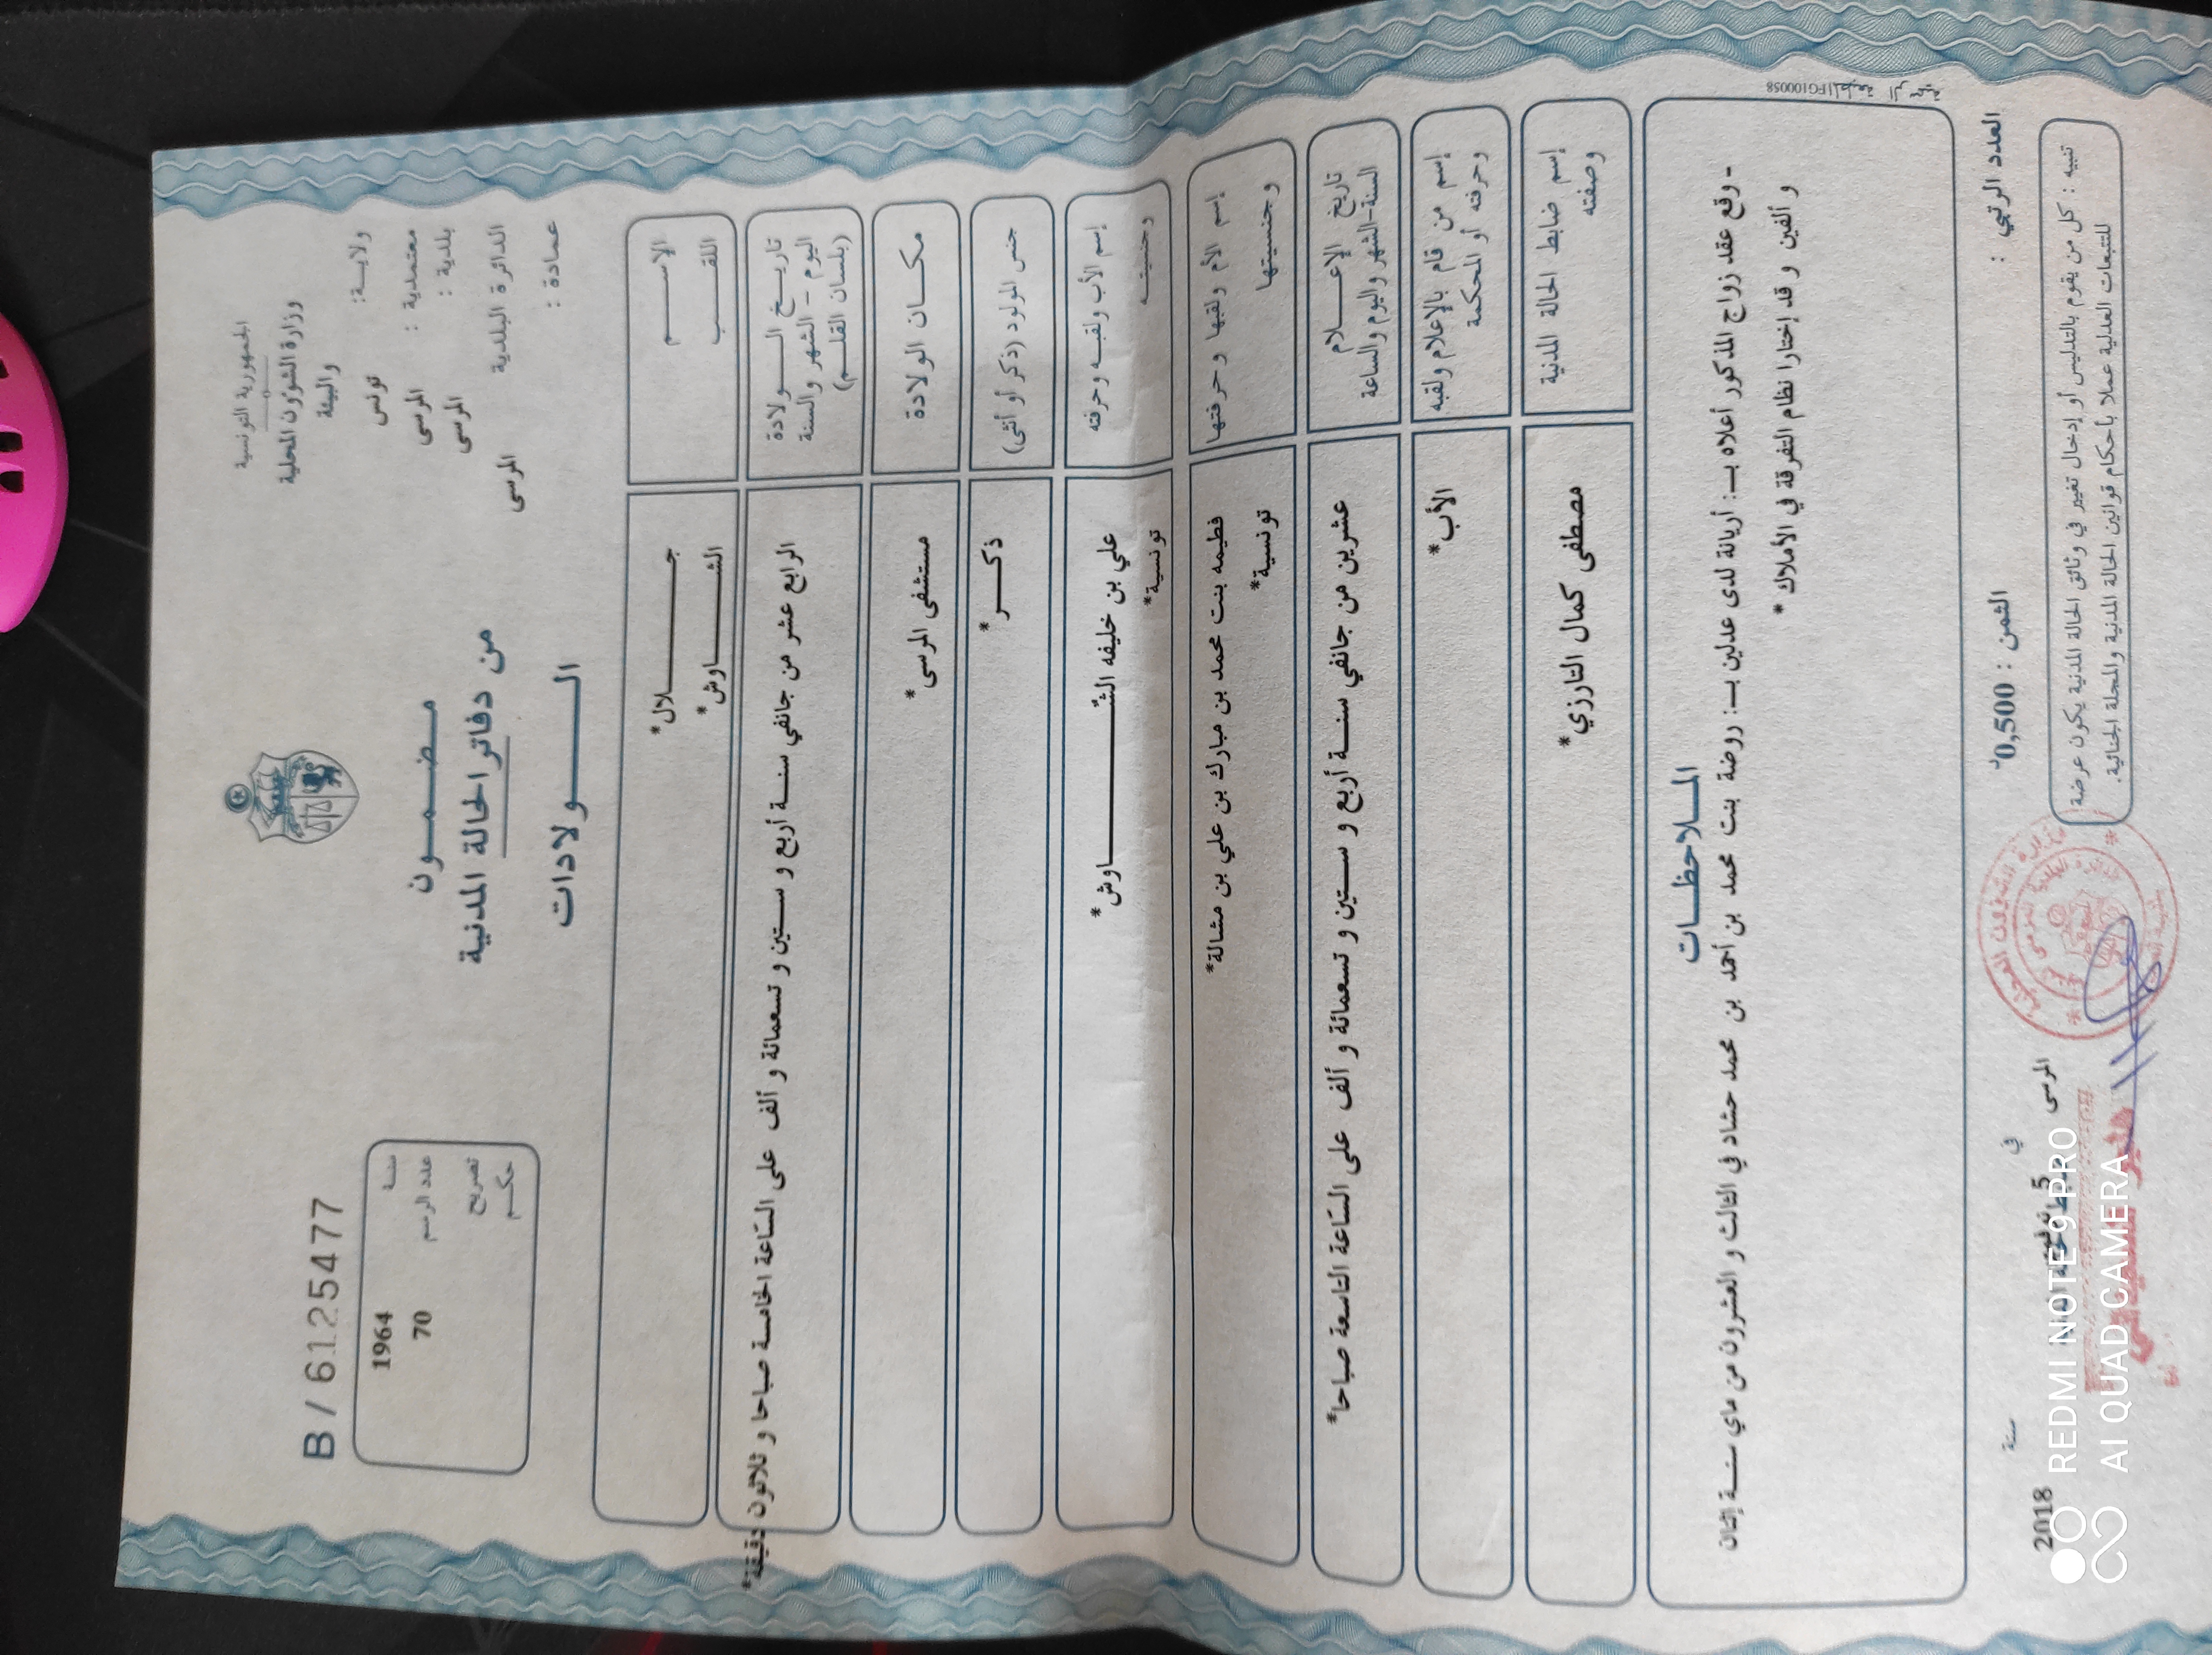 الجمهورية التونسية
وزارة الشؤون المحلية
والبيئة
ولاية: تونس
معتمدية : المرسى
بلدية : المرسى
الدائرة البلدية المرسى
عمادة :
B / 6125477
سنة 1964
عدد الرسم 70
تصريح
حكم
مضمون
من دفاتر الحالة المدنية
الولادات
الاسم جلال*
اللقب الشاوش*
تاريخ الولادة
اليوم - الشهر والسنة
(بلسان القلم)
الرابع عشر من جانفي سنة أربع و ستين و تسعمائة و ألف على الساعة الخامسة صباحا و ثلاثون دقيقة*
مكان الولادة مستشفى المرسى*
جنس المولود (ذكر أو أنثى) ذكر*
إسم الأب ولقبه وحرفته علي بن خليفه الشاوش*
وجنسيته تونسية*
إسم الأم ولقبها وحرفتها فطيمه بنت محمد بن مبارك بن علي بن مشالة*
وجنسيتها تونسية*
تاريخ الإعلام
السنة-الشهر واليوم والساعة
عشرين من جانفي سنة أربع و ستين و تسعمائة و ألف على الساعة التاسعة صباحا*
إسم من قام بالإعلام ولقبه
وحرفته أو المحكمة
الأب*
إسم ضابط الحالة المدنية
وصفته
مصطفى كمال التارزي*
الملاحظات
- وقع عقد زواج المذكور أعلاه بـ: أريانة لدى عدلين بـ: روضة بنت محمد بن أحمد بن محمد حشاد في الثالث و العشرون من ماي سنة إثنان
و ألفين و قد إختارا نظام التفرقة في الأملاك *
العدد الرتبي :
الثمن : 0,500د
المرسى في
سنة 2018
تنبيه : كل من يقوم بالتدليس أو إدخال تغيير في وثائق الحالة المدنية يكون عرضة
للتتبعات العدلية عملا بأحكام قوانين الحالة المدنية والمجلة الجنائية.
REDMI NOTE 9 PRO
AI QUAD CAMERA